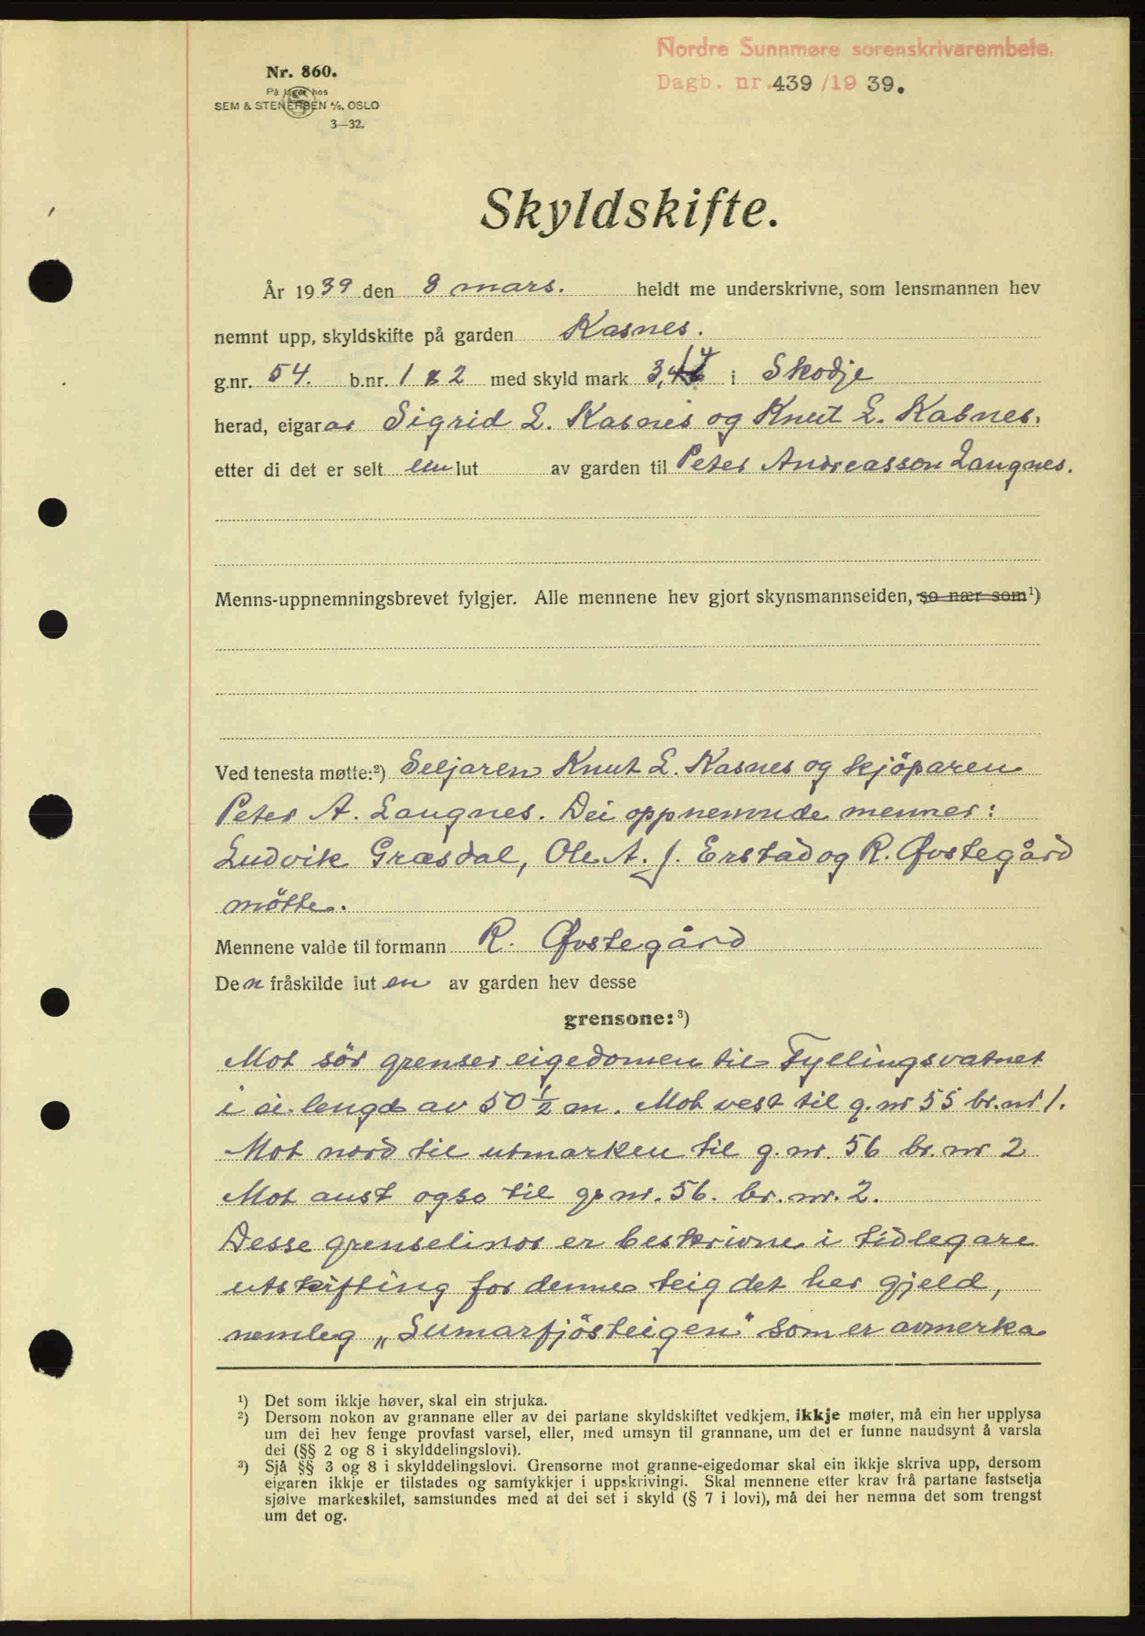 Nordre Sunnmøre sorenskrivarembete.
Dagb. nr. 439/1939.
Nr. 860.
På lager hos
SEM & STENERSEN A/S, OSLO
3—32.
Skyldskifte.
År 1939 den 8 mars. heldt me underskrivne, som lensmannen hev
nemnt upp, skyldskifte på garden Kasnes.
g.nr. 54. b.nr. 1 & 2 med skyld mark 3, i Skodje
herad, eigarar Sigrid L. Kasnes og Knut L. Kasnes.
etter di det er selt ein lut av garden til Peter Andreasson Langnes.
Menns-uppnemningsbrevet fylgjer. Alle mennene hev gjort skynsmannseiden, so nær som¹)
Ved tenesta møtte:²) Seljaren Knut L. Kasnes og kjöparen
Peter A. Langnes. Dei oppnemnde menner:
Ludvik Græsdal, Ole A. J. Erstad og R. Øvstegård
mötte.
Mennene valde til formann R. Øvstegård
Den fråskilde luten av garden hev desse
grensone:³)
Mot sör grenser eigedomen til Fyllingsvatnet
i ei lengd av 50 1/2 m. Mot vest til g.nr 55 br.nr 1.
Mot nord til utmarken til g.nr. 56 br. nr 2
Mot aust ogso til g. nr. 56. br. nr. 2.
Desse grenselinor er beskrivne i tidlegare
utskifting for denne teig det her gjeld,
nemleg „Sumarfjösteigen" som er avmerka
¹) Det som ikkje høver, skal ein strjuka.
²) Dersom nokon av grannane eller av dei partane skyldskiftet vedkjem, ikkje møter, må ein her upplysa
um dei hev fenge provfast varsel, eller, med umsyn til grannane, um det er funne naudsynt å varsla
dei (§§ 2 og 8 i skylddelingslovi).
³) Sjå §§ 3 og 8 i skylddelingslovi. Grensorne mot granne-eigedomar skal ein ikkje skriva upp, dersom
eigaren ikkje er tilstades og samtykkjer i uppskrivingi. Skal mennene etter krav frå partane fastsetja
sjølve markeskilet, samstundes med at dei set i skyld (§ 7 i lovi), må dei her nemna det som trengst
um det og.